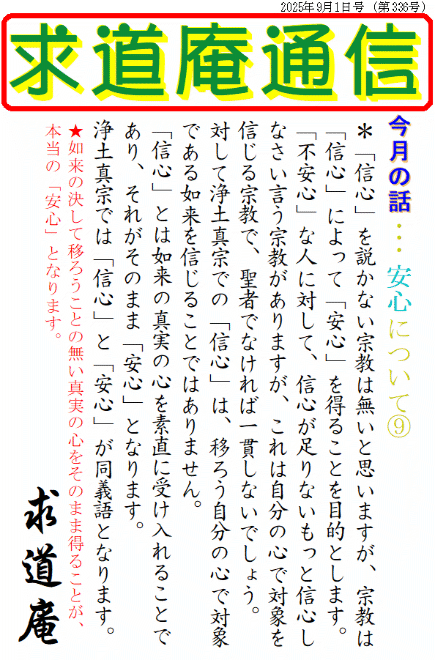 2025年9月1日号（第336号）
求道庵通信
今月の話…安心について⑨
＊「信心」を説かない宗教は無いと思いますが、宗教は
「信心」によって「安心」を得ることを目的とします。
「不安心」な人に対して、信心が足りないもっと信心し
なさい言う宗教がありますが、これは自分の心で対象を
信じる宗教で、聖者でなければ一貫しないでしょう。
対して浄土真宗での「信心」は、移ろう自分の心で対象
である如来を信じることではありません。
「信心」とは如来の真実の心を素直に受け入れることで
あり、それがそのまま「安心」となります。
浄土真宗では「信心」と「安心」が同義語となります。
★如来の決して移ろうことの無い真実の心をそのまま得ることが、
本当の「安心」となります。
求道庵